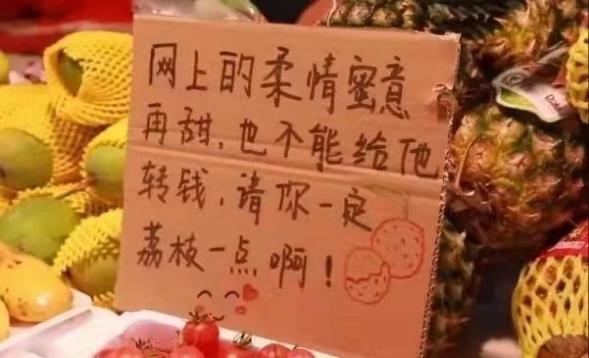 网上的柔情蜜意
再甜,也不能给他
转钱,请你一定
荔枝一点啊!